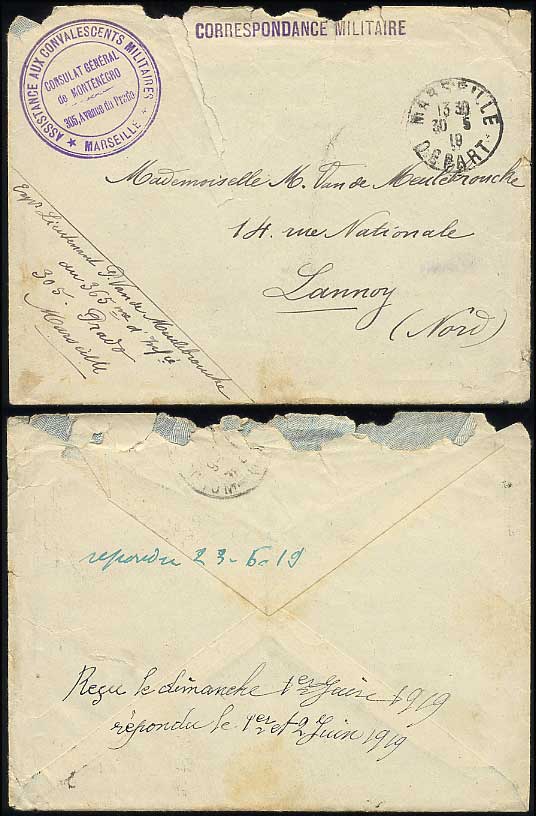 CORRESPONDANCE MILITAIRE
★ ASSISTANCE AUX CONVALESCENTS MILITAIRES ★
MARSEILLE
CONSULAT GÉNÉRAL
de MONTÉNÉGRO
305, Avenue du Prado
MARSEILLE
13 30
30 5
19
DEPART
Mademoiselle M. Van de Meulebrouche
14. rue Nationale
Lannoy
(Nord)
Expr Lieutenant D. Van de Meulebrouche
du 365me d'Infie
305. Prado
Marseille
repondu 23-6-19
Reçu le dimanche 1er Juin 1919
répondu le 1er et 2 Juin 1919